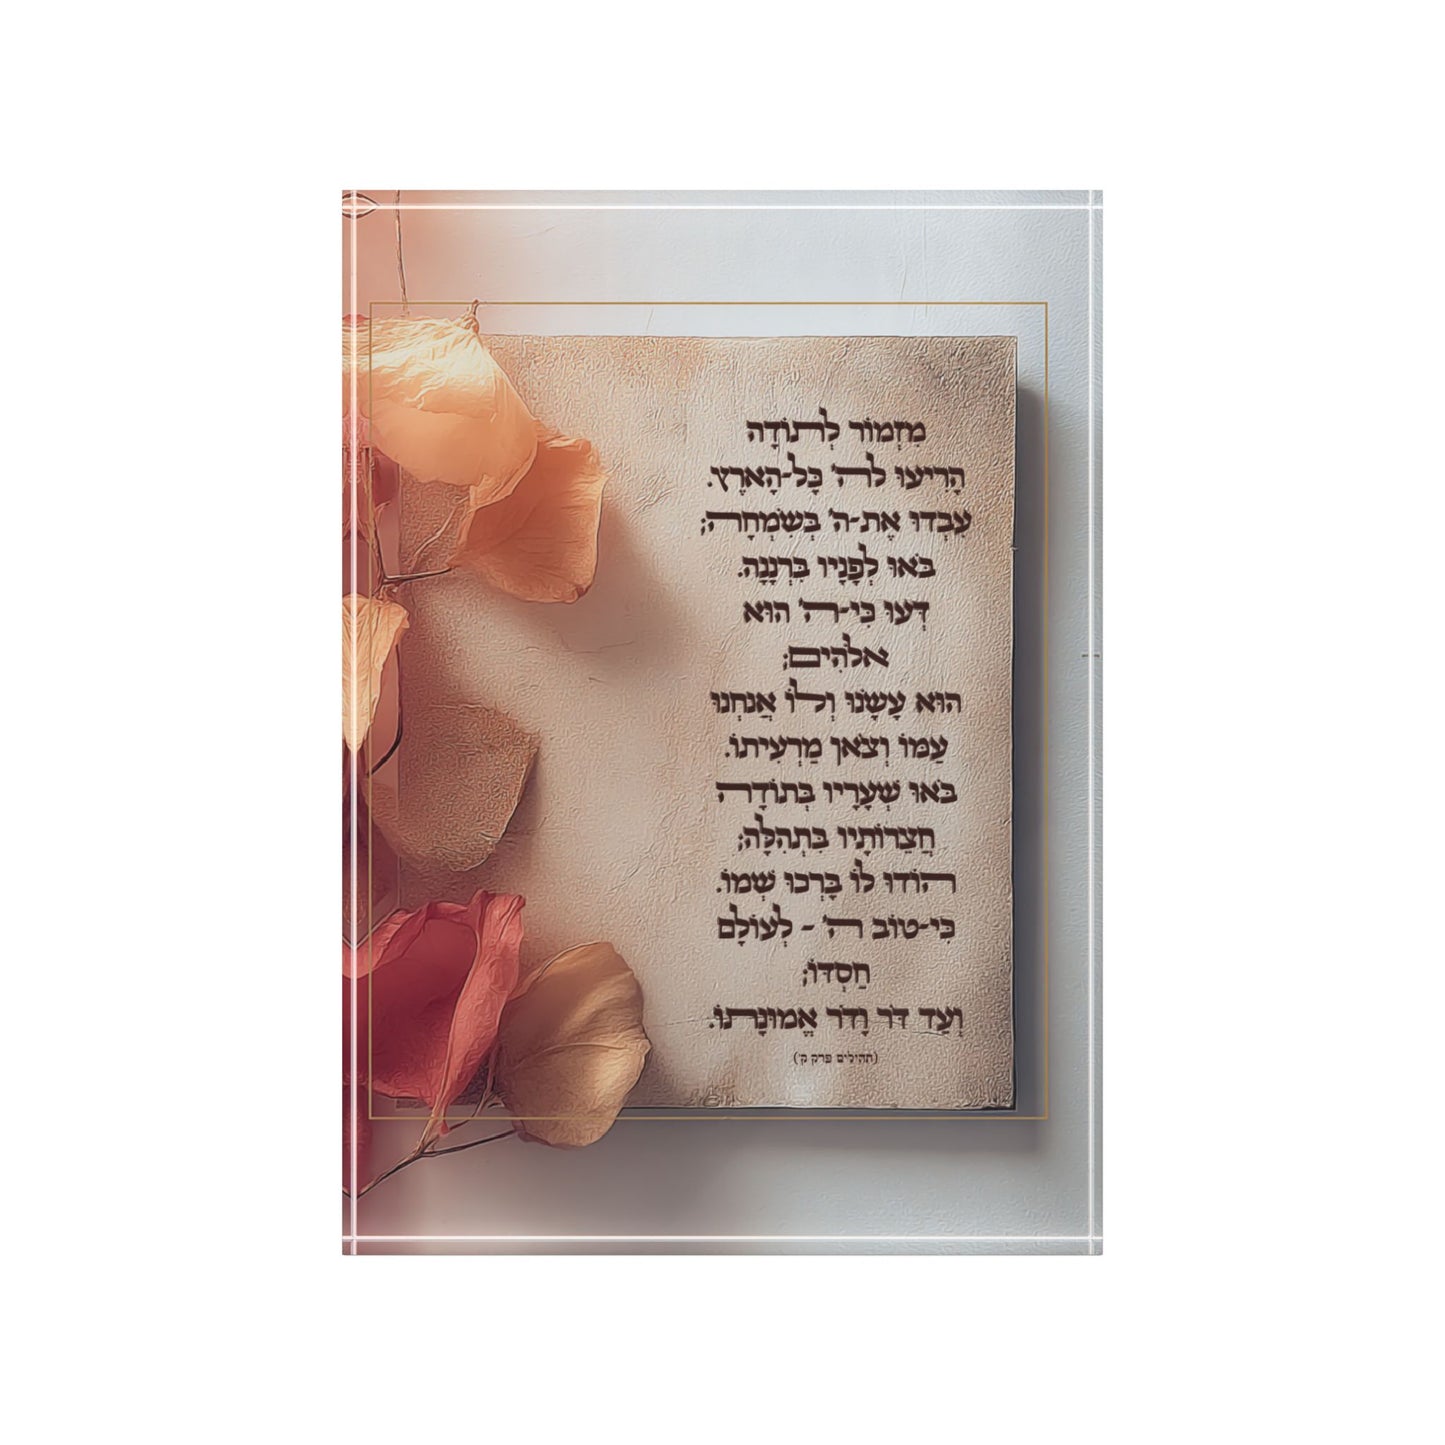 מִזְמוֹר לְתוֹדָה
הָרִיעוּ לה' כָּל-הָארֶץ.
עִבְדוּ אֶת-ה' בְּשִׂמְחָה;
בֹּאוּ לְפָנָיו בִּרְנָנָה.
דְּעוּ כִּי-ה' הוּא
אלֹהִים;
הוּא עָשָׂנוּ וְלוֹ אֲנחְנוּ
עַמּוֹ וְצֹאן מַרְעִיתוֹ.
בֹּאוּ שְׁעָרָיו בְּתוֹדָה
חֲצֵרוֹתָיו בִּתְהִלָּה;
הוֹדוּ לוֹ בָּרְכוּ שְׁמוֹ.
כִּי-טוֹב ה' - לְעוֹלָם
חַסְדּוֹ;
וְעַד דֹּר וָדֹר אֱמוּנָתוֹ.
(תהילים פרק ק')